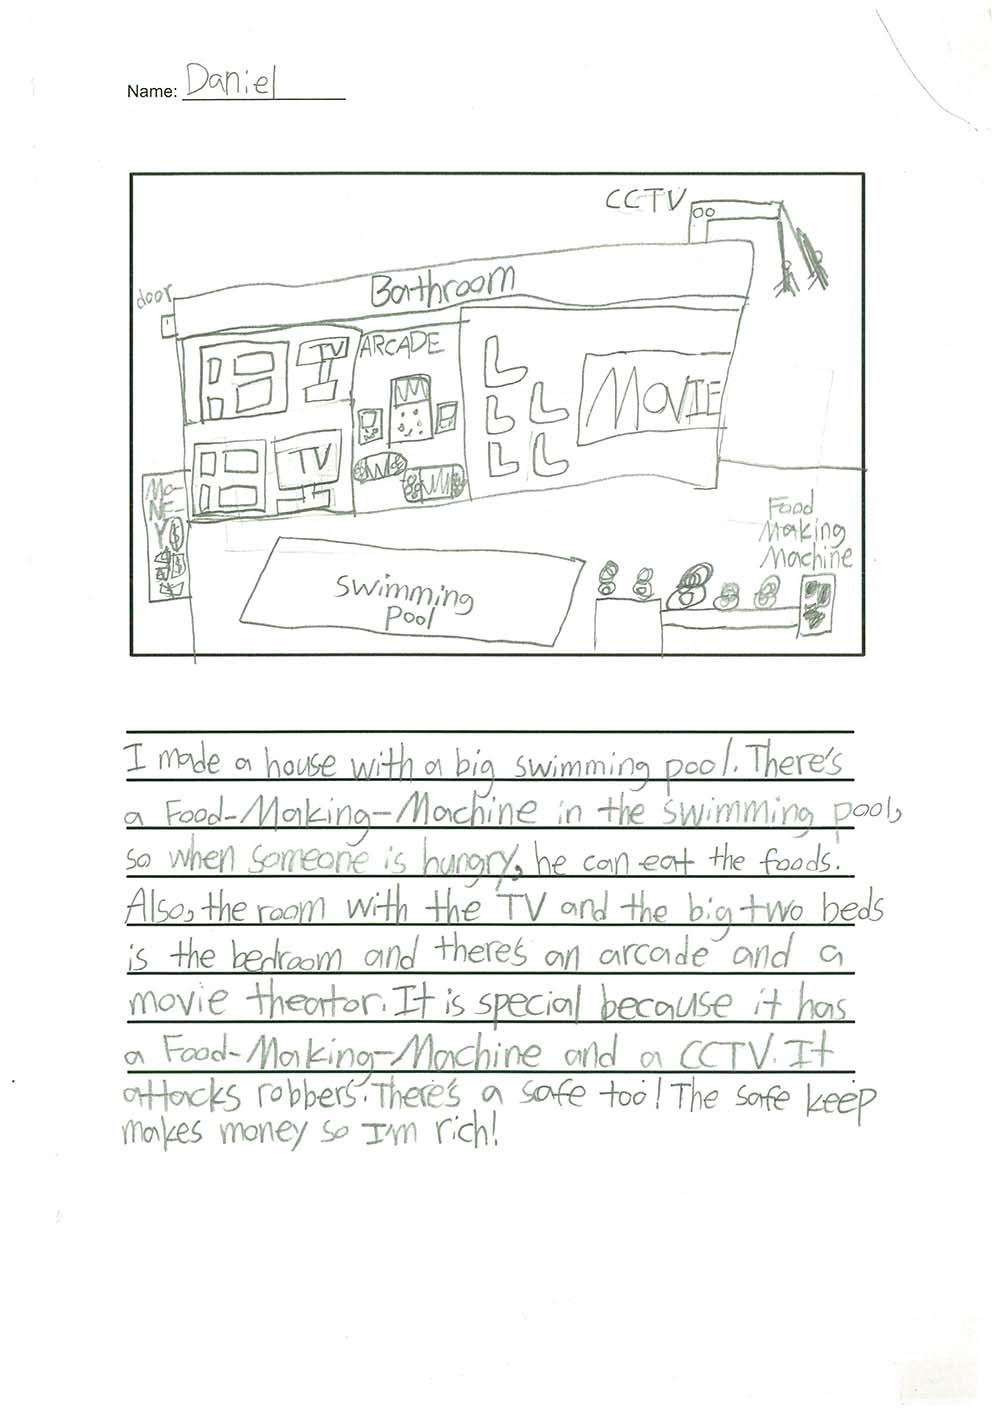 Name: Daniel
CCTV
door
Bathroom
TV
ARCADE
MOVIE
TV
MO-
NE-
Y $
$
$
Food
Making
Machine
Swimming
Pool
I made a house with a big swimming pool. There's
a Food-Making-Machine in the swimming pool,
so when someone is hungry, he can eat the foods.
Also, the room with the TV and the big two beds
is the bedroom and there's an arcade and a
movie theator. It is special because it has
a Food-Making-Machine and a CCTV. It
attacks robbers. There's a safe too! The safe keep
makes money so I'm rich!